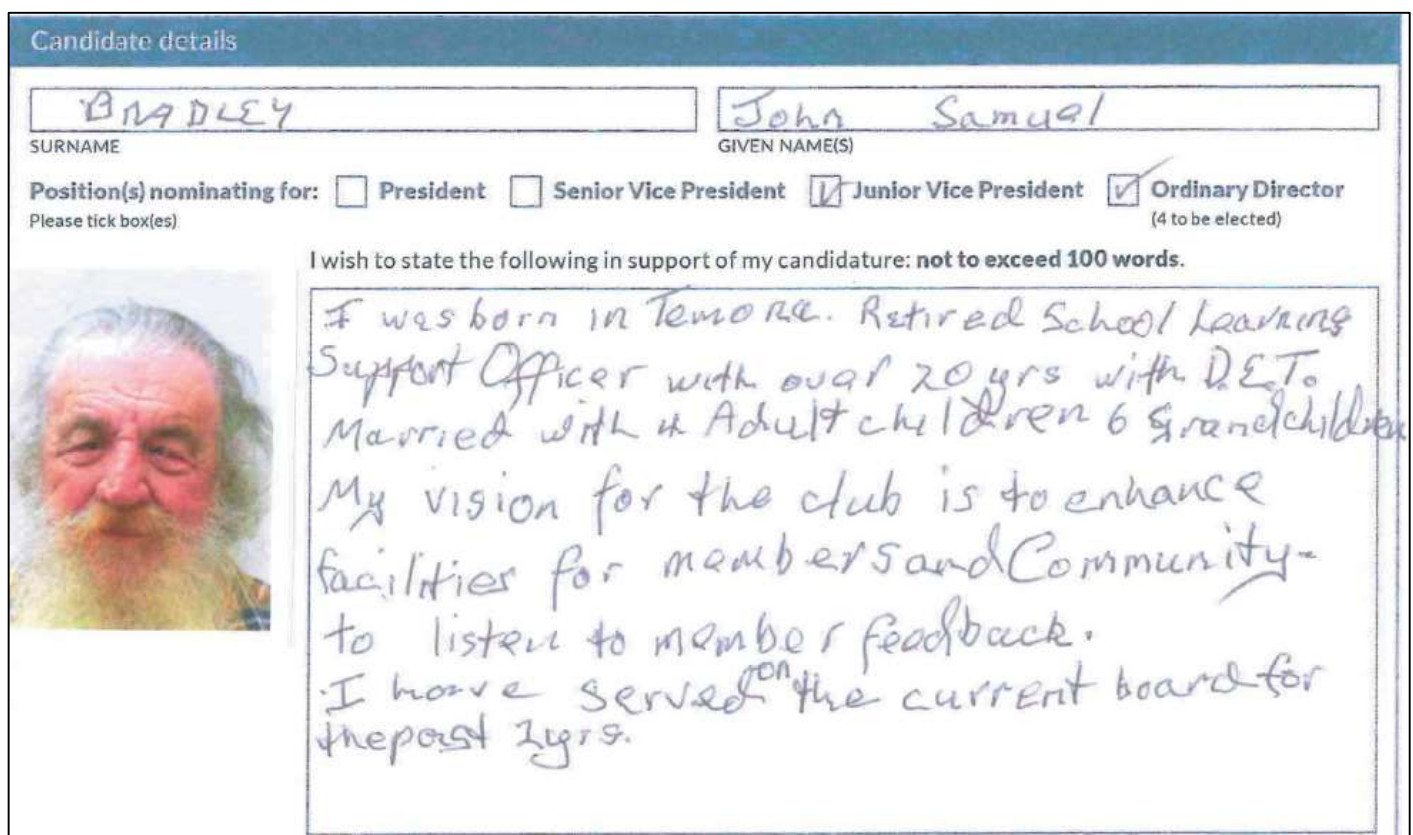 Candidate details
BRADLEY
John Samuel
SURNAME
GIVEN NAME(S)
Position(s) nominating for: President Senior Vice President Junior Vice President Ordinary Director
Please tick box(es)
(4 to be elected)
I wish to state the following in support of my candidature: not to exceed 100 words.
I was born in Temora. Retired School Learning
Support Officer with over 20 yrs with D.E.T.
Married with 4 Adult children 6 Grandchildren
My vision for the club is to enhance
facilities for members and Community-
to listen to member feedback.
I have served on the current board for
the past 2yrs.